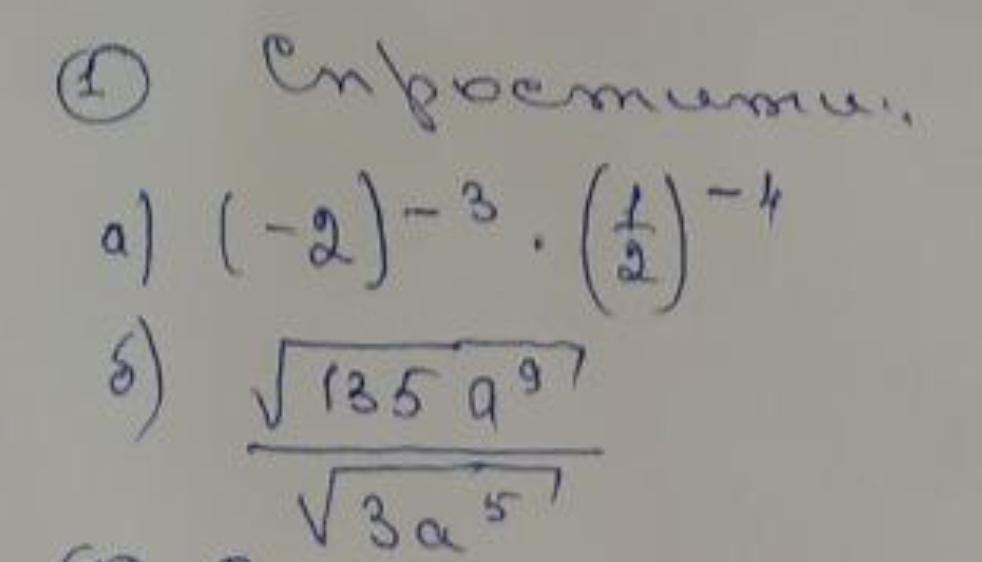 ① Спростити.
а) (-2)⁻³ · (1/2)⁻⁴
б) √(135 a⁹) / √(3a⁵)